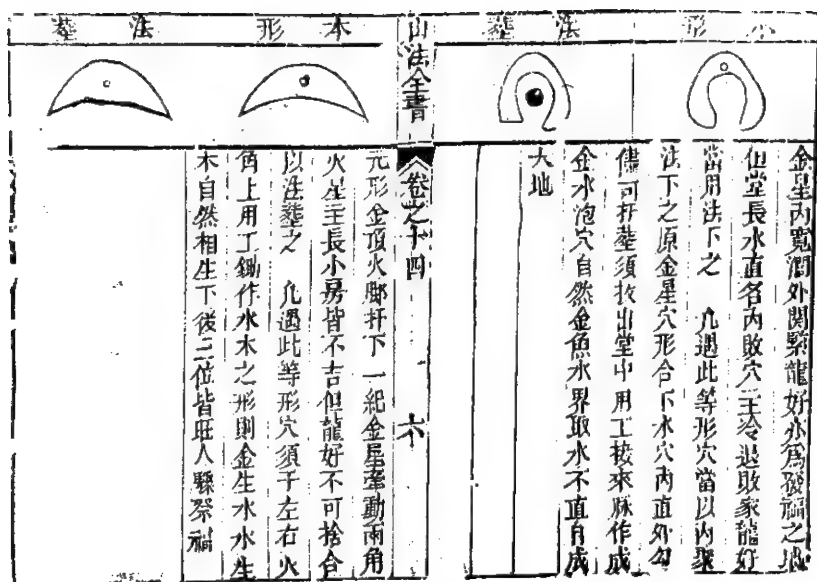 本形
葬法
金星內寬濶外関緊龍好亦爲發福之地
但堂長水直名內敗穴主冷退敗家龍好
當用法下之 凢遇此等形穴當以內聚
法下之原金星穴形合下水穴內直外勾
儘可扦葬須扵出堂中用工接來脉作成
金水泡穴自然金魚水界取水不直自成
大地
山法全書
卷之十四
六
本形
葬法
元形金頂火脚扦下一紀金星牽動兩角
火星主長小房皆不吉但龍好不可捨合
以法葬之 凢遇此等形穴須于左右火
角上用工鋤作水木之形則金生水水生
木自然相生下後二位皆旺人驟發福